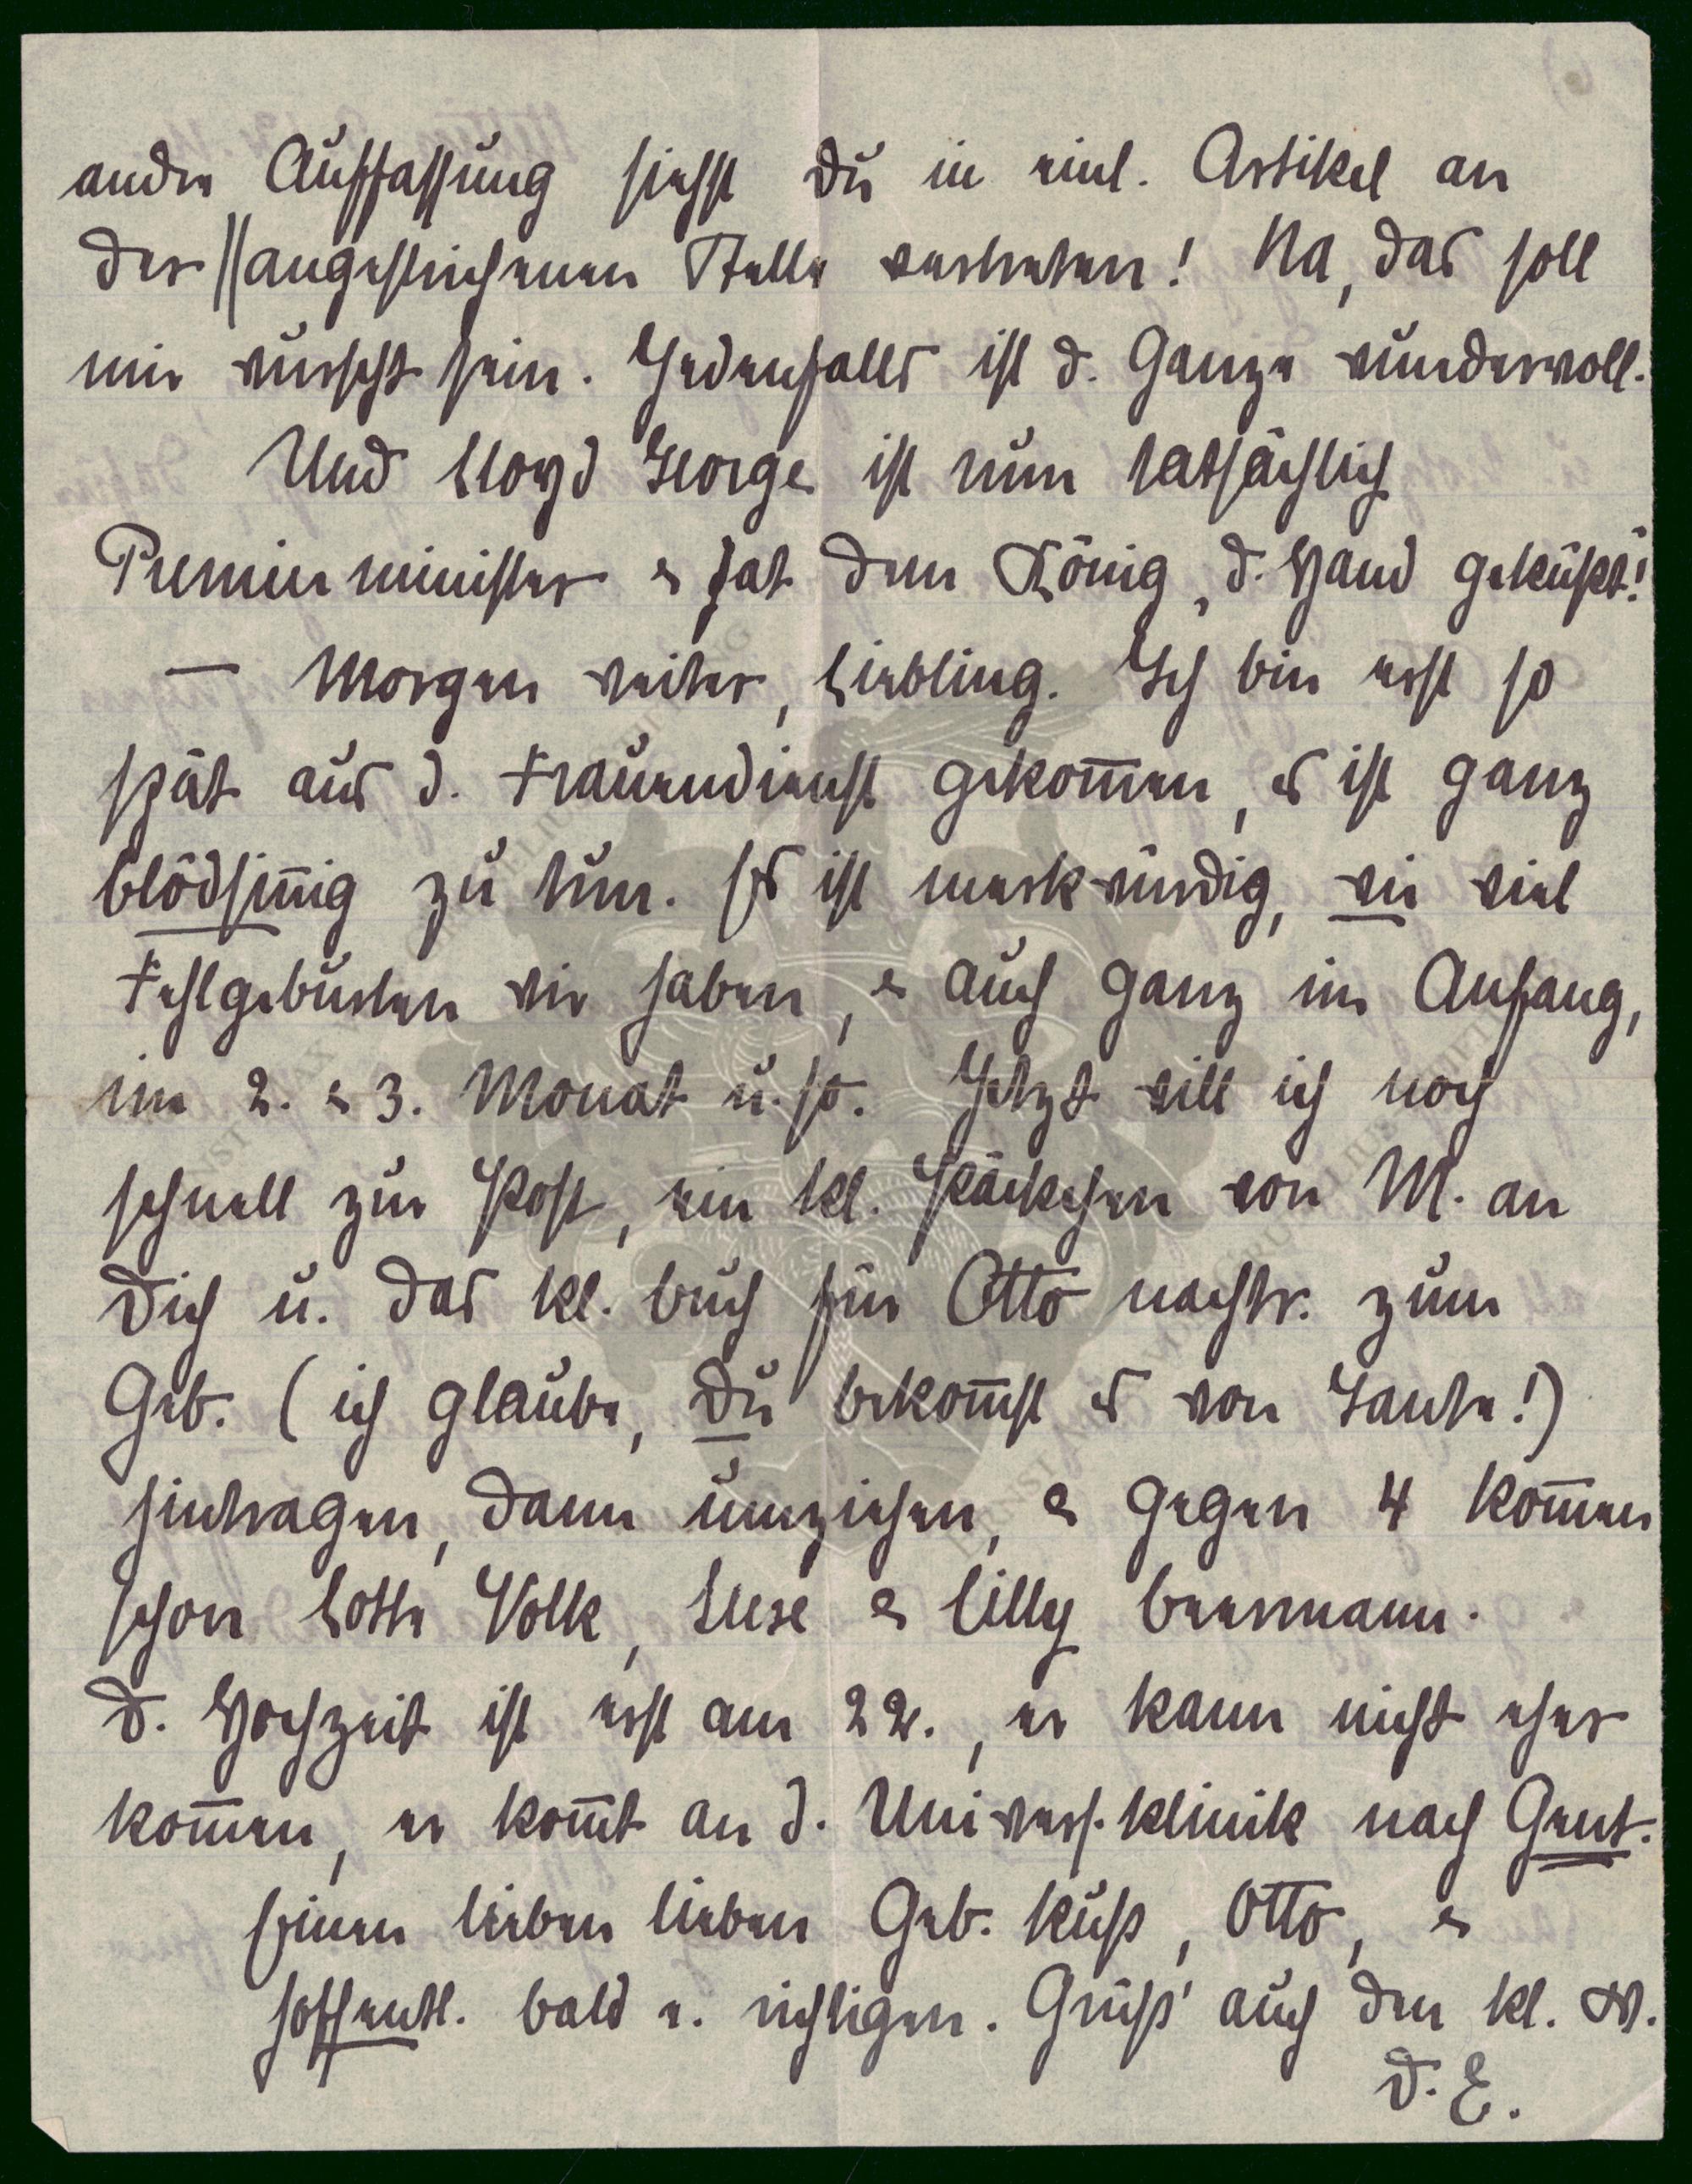 andre Auffassung siehst Du in einl. Artikel an
der || angestrichenen Stelle vertreten! Na, das soll
mir wurscht sein. Jedenfalls ist d. Ganze wundervoll.
Und Lloyd George ist nun tatsächlich
Premierminister & hat dem König d. Hand geküßt!
— Morgen weiter, Liebling. Ich bin erst so
spät aus d. Frauendienst gekom̅en, es ist ganz
blödsin̅ig zu tun. Es ist merkwürdig, wie viel
Fehlgeburten wir haben, & auch ganz im Anfang,
im 2. & 3. Monat u. so. Jetzt will ich noch
schnell zur Post, ein kl. Päckchen von M. an
Dich u. das kl. Buch für Otto nachtr. zum
Geb. (ich glaube, Du bekom̅st es von Tante!)
hintragen, dann umziehen, & gegen 4 kom̅en
schon Lotte Volk, Liese & Lilly Beermann.
D. Hochzeit ist erst am 22., er kann nicht eher
kom̅en, er kom̅t an d. Univers. klinik nach Gent.
Einen lieben lieben Geb. kuß, Otto, &
hoffentl. bald e. richtigen. Grüß' auch den kl. W.
D. E.